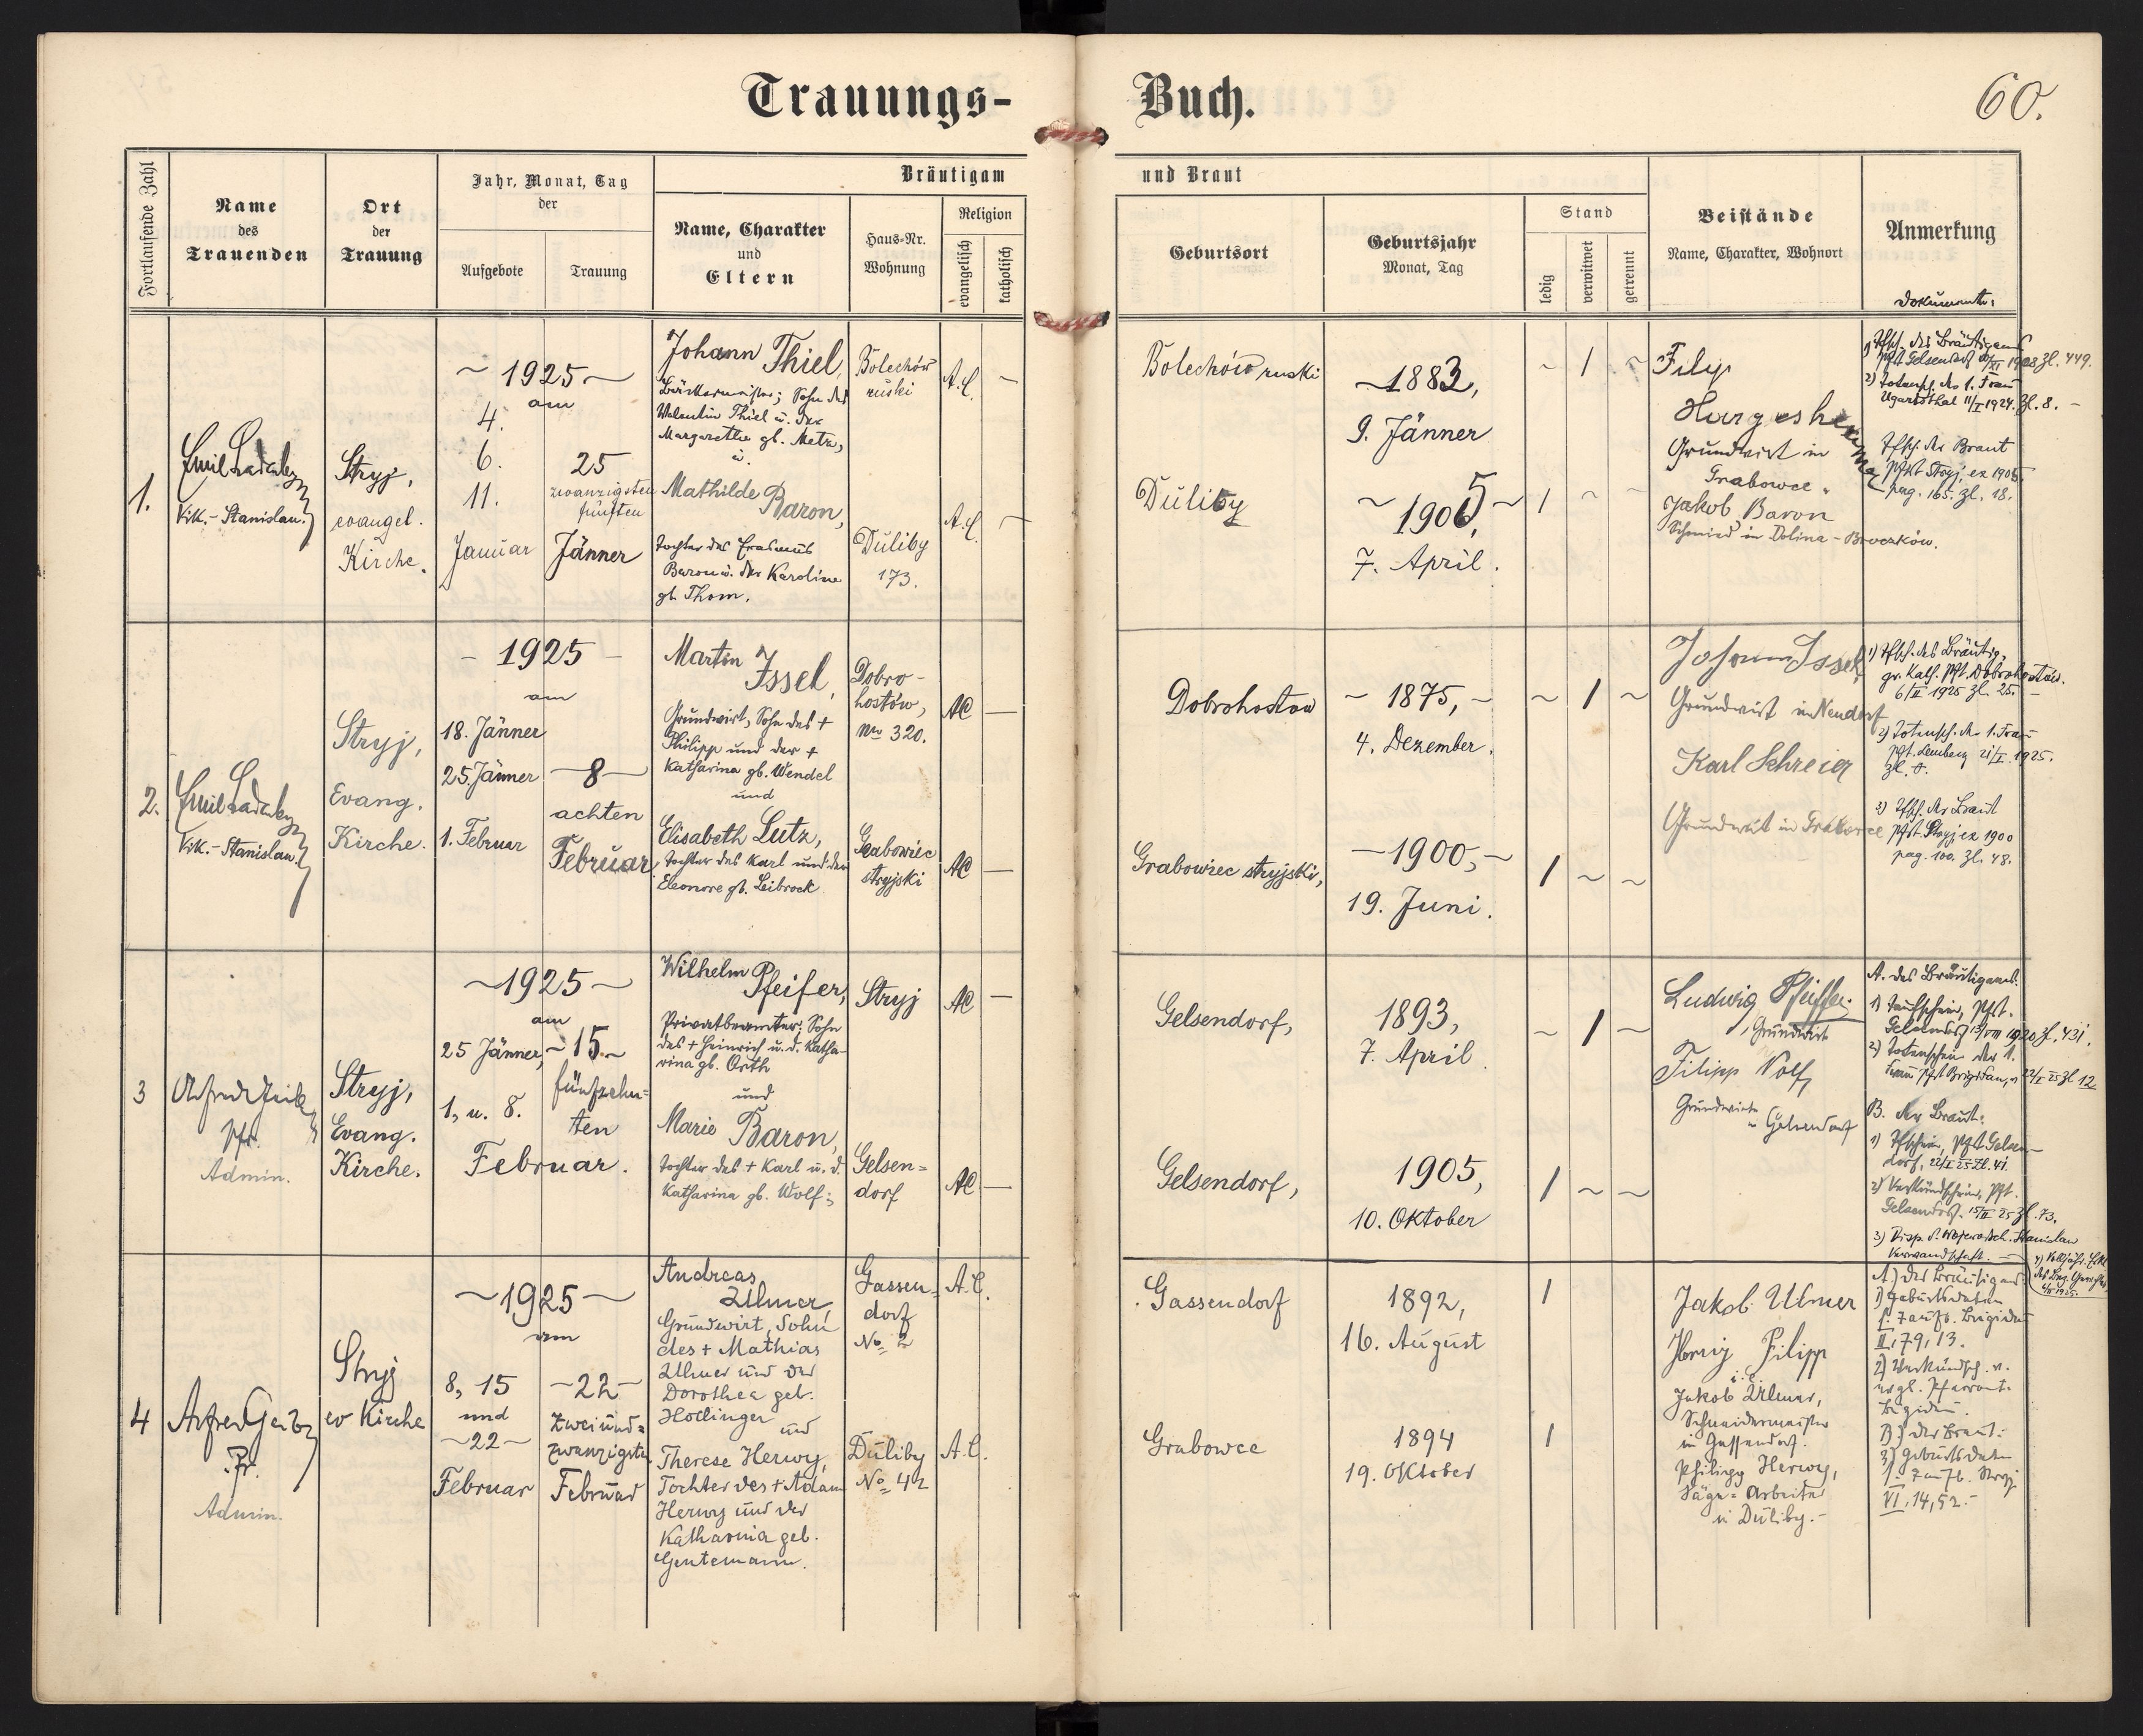 Trauungs-
Buch.
60.
Fortlaufende Zahl
Name
des
Trauenden
Ort
der
Trauung
Jahr, Monat, Tag
der
Aufgebote
Trauung
Bräutigam
Name, Charakter
und
Eltern
Haus-Nr.
Wohnung
Religion
evangelisch
katholisch
und Braut
Geburtsort
Geburtsjahr
Monat, Tag
Stand
ledig
verwitwet
getrennt
Beistände
Name, Charakter, Wohnort
Anmerkung
Dokumente:
1.
Emil Ladenberger
Vik. - Stanislau.
Stryj,
evangel.
Kirche.
~ 1925 ~
am
4.
6.
11.
Januar
25
zwanzigsten
fünften
Jänner
Johann Thiel,
Bäckermeister; Sohn des
Valentin Thiel u. der
Margaretha gb. Metz,
u.
Mathilde
Baron,
Tochter des Erasmus
Baron u. der Karoline
gb. Thom.
Bolechów
ruski
A.C.
Duliby
173.
A.C.
Bolechów ruski
~1883,
9. Jänner
~ 1 ~
Duliby
~ 1905, ~
7. April.
1 ~ ~
Filip
Hargesheimer
Grundwirt in
Grabowce.
Jakob Baron
Schmied in Dolina - Broczków.
1) Tfsch. des Bräutigams
Pfst. Gelsendorf 1908 Zl. 449.
2) Totensch. der 1. Frau
Ugartsthal 11/I 1924. Zl. 8. -
Tfsch. der Braut
Pfst. Stryj, ex 1905.
pag. 165. Zl. 18.
2.
Emil Ladenberger
Vik. - Stanislau.
Stryj,
Evang.
Kirche.
- 1925 -
am
18. Jänner
25. Jänner
1. Februar
- 8 -
achten
Februar
Martin
Issel,
Grundwirt, Sohn des +
Philipp und der +
Katharina gb. Wendel
und
Elisabeth Lutz,
Tochter des Karl und der
Eleonore gb. Leibrock.
Dobro-
hostów,
Nro 320.
AC -
Grabowiec
stryjski
AC -
Dobrohostow
~ 1875, ~
4. Dezember.
~ 1 ~
Grabowiec stryjski,
- 1900, ~
19. Juni.
1 ~ ~
Johann Issel
Grundwirt in Neudorf
Karl Schreier
Grundwirt in Grabowce
1) Tfsch. des Bräutig.
gr. kath. Pfst. Dobrohostów.
6/II 1925 Zl. 25. -
2) Totensch. der 1. Frau
Pfst. Lemberg 21/I 1925.
Zl. 8.
3) Tfsch. der Braut
Pfst. Stryj ex 1900
pag. 100. Zl. 48.
3
Pfr.
Admin.
Stryj,
Evang.
Kirche.
~ 1925 ~
am
25 Jänner,
1. u. 8.
~ 15. ~
fünfzehn-
ten
Februar.
Wilhelm
Pfeifer,
Privatbeamter; Sohn
des + Heinrich u. d. Katha-
rina gb. Orth
und
Marie
Baron,
Tochter des + Karl u. d.
Katharina gb. Wolf;
Stryj
AC -
Gelsen-
dorf
AC -
Gelsendorf,
1893,
7. April.
~ 1 ~
Gelsendorf,
1905,
10. Oktober
1 ~ ~
Ludwig Pfeiffer
Grundwirt
Filipp Wolf
Grundwirte
in Gelsendorf
A. des Bräutigams.
1) Taufschein, Pfst.
Gelsendorf 13/VIII 1920 Zl. 431.
2) Totenschein der 1.
Frau Pfst Brigidau, v. 22/I 25 Zl 12.
B. der Braut.
1) Tfschein, Pfst Gelsen-
dorf, 22/I 25 Zl. 41.
2) Verkündschein, Pfst.
Gelsendorf. 15/II 25 Zl. 73.
3) Disp. d. Wojewodsch. Stanislau
Verwandschaft.
4
Pfr.
Admin.
Stryj
ev Kirche
~ 1925 ~
am
8, 15
und
~ 22 ~
Februar
- 22 -
zweiund-
zwanzigsten
Februar
Andreas
Ulmer,
Grundwirt, Sohn
des + Mathias
Ulmer und der
Dorothea geb.
Hollinger
und
Therese Herwy,
Tochter des + Adam
Herwy und der
Katharina geb.
Gentemann.
Gassen-
dorf
No 2
A.C.
Duliby
No 42
A.C.
Gassendorf
1892,
16. August
1
Grabowce
1894
19. Oktober
1
Jakob Ulmer
Herwy Filipp
i. e.
Jakob Ulmer,
Schneidermeister
in Gassendorf.
Philipp Herwy,
Säge-Arbeiter
in Duliby. -
A.) des Bräutigams
1) Geburtsdaten
s. Taufb. Brigidau
II, 79, 13.
2) Verkündsch. v.
evgl. Pfarramt.
Brigidau.
B.) der Braut:
3) Geburtsdaten
s. Taufb. Stryj
VI, 14, 52. -